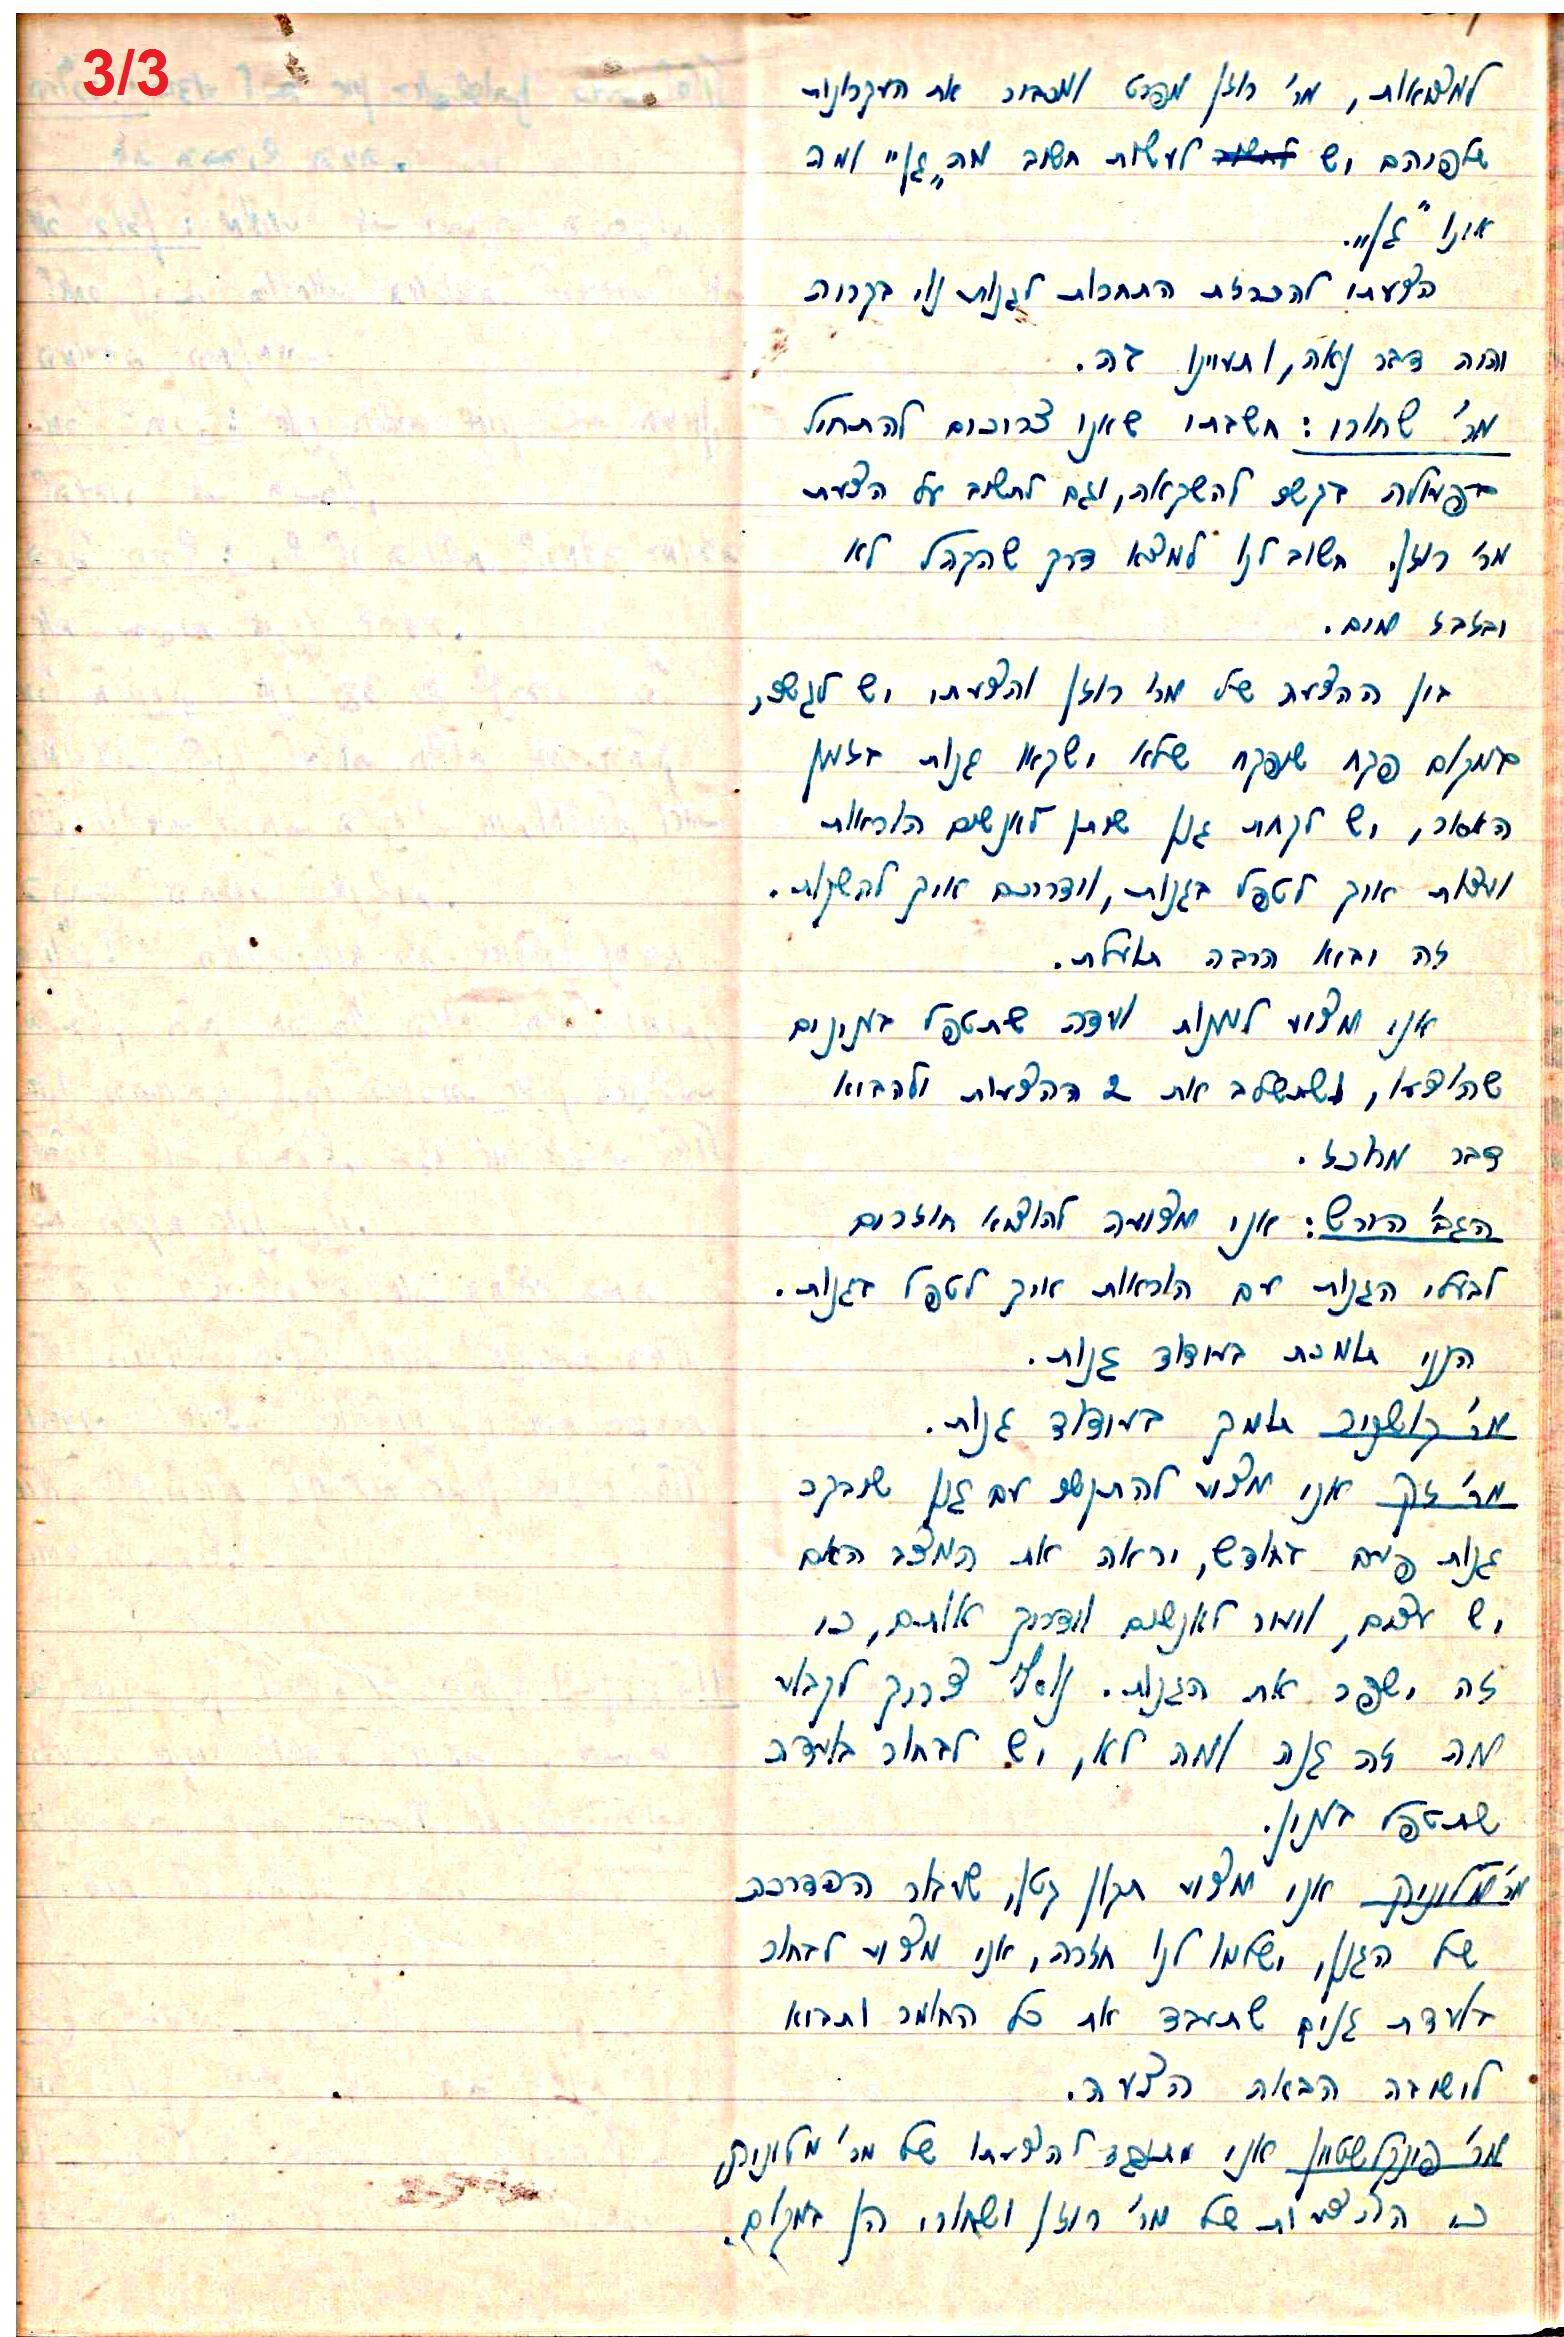 3/3
למציאות, מר' רוזן מפרט ומסביר את העקרונות
שלפיהם יש לחשוב לעשות חשוב מה "גן" ומה
אינו "גן".
הצעתי להכרזת התחרות לגנות נוי בקריה
והיה דבר נאה, ותעיינו בזה.
מר' שחורי: חשבתי שאנו צריכים להתחיל
בפעולה בקשר להשקאה, וגם לחשוב על הצעת
מר' רוזן. חשוב לנו למצא דרך שהקהל לא
יבזבז מים.
בין ההצעה של מר' רוזן והצעתי יש לגשר,
במקום פקח שיפקח שלא ישקאו גנות בזמן
האסור, יש לקחת גנן שיתן לאנשים הוראות
ועצות איך לטפל בגנות, וידריכם איך להשקות.
זה יביא הרבה תועלת.
אני מציע למנות ועדה שתטפל בענינים
שהוצעו, ושתשלב את 2 ההצעות ולהביא
דבר מרוכז.
הגב' הירש: אני מציעה להוציא חוזרים
לבעלי הגנות עם הוראות איך לטפל בגנות.
הנני תומכת בעידוד גנות.
מר' קושניר תומך בעידוד גנות.
מר' זק אני מציע להתקשר עם גנן שיבקר
גנות פעם בחודש, יראה את המצב האם
יש עצים, ויעיר לאנשים וידריך אותם, כי
זה ישפר את הגנות. צריך לקבוע
מה זה גנה ומה לא, יש לבחור בועדה
שתטפל בענין.
מר' מלוניק אני מציע תקון קטן, שעבור ההדרכה
של הגנן, ישלמו לנו חזרה, אני מציע לבחור
בועדת גנים שתעבד את כל החומר ותביא
לישיבה הבאה הצעה.
מר' פינקלשטיין אני מתנגד להצעתו של מר' מלוניק,
כי ההצעות של מר' רוזן ושחורי הן במקום.